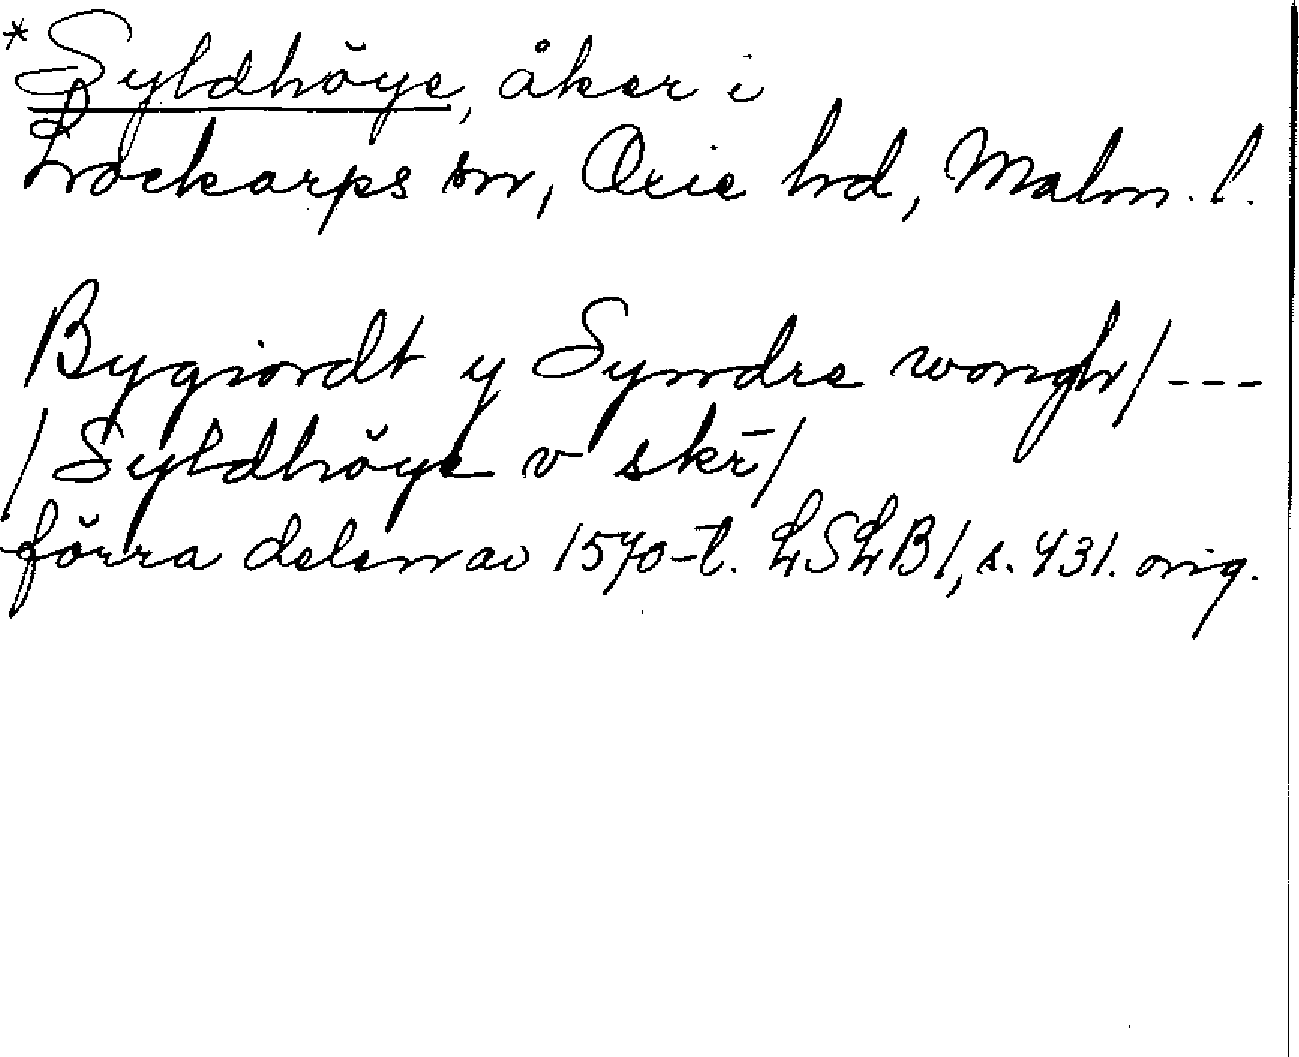 *Syldhöye, åker i
Lockarps sn, Oxie hd, Malm. l.
Bygiordt y Syndre wongh/---
/Syldhöye v skr̄/
förra delen av 1570-t. LSLB1, s. 431. orig.